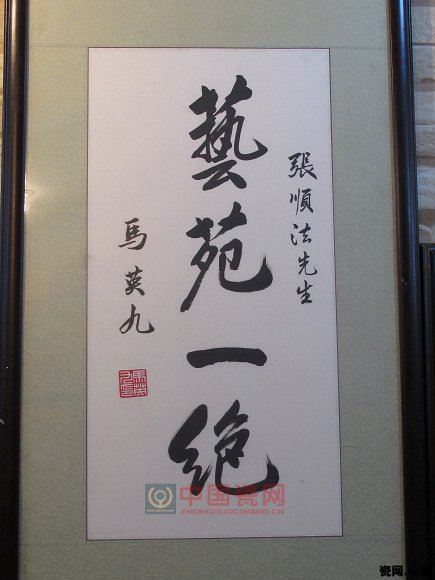 張順法先生
藝苑一絶
馬英九
中国瓷网
ZHONGGUOCIWANG.CN